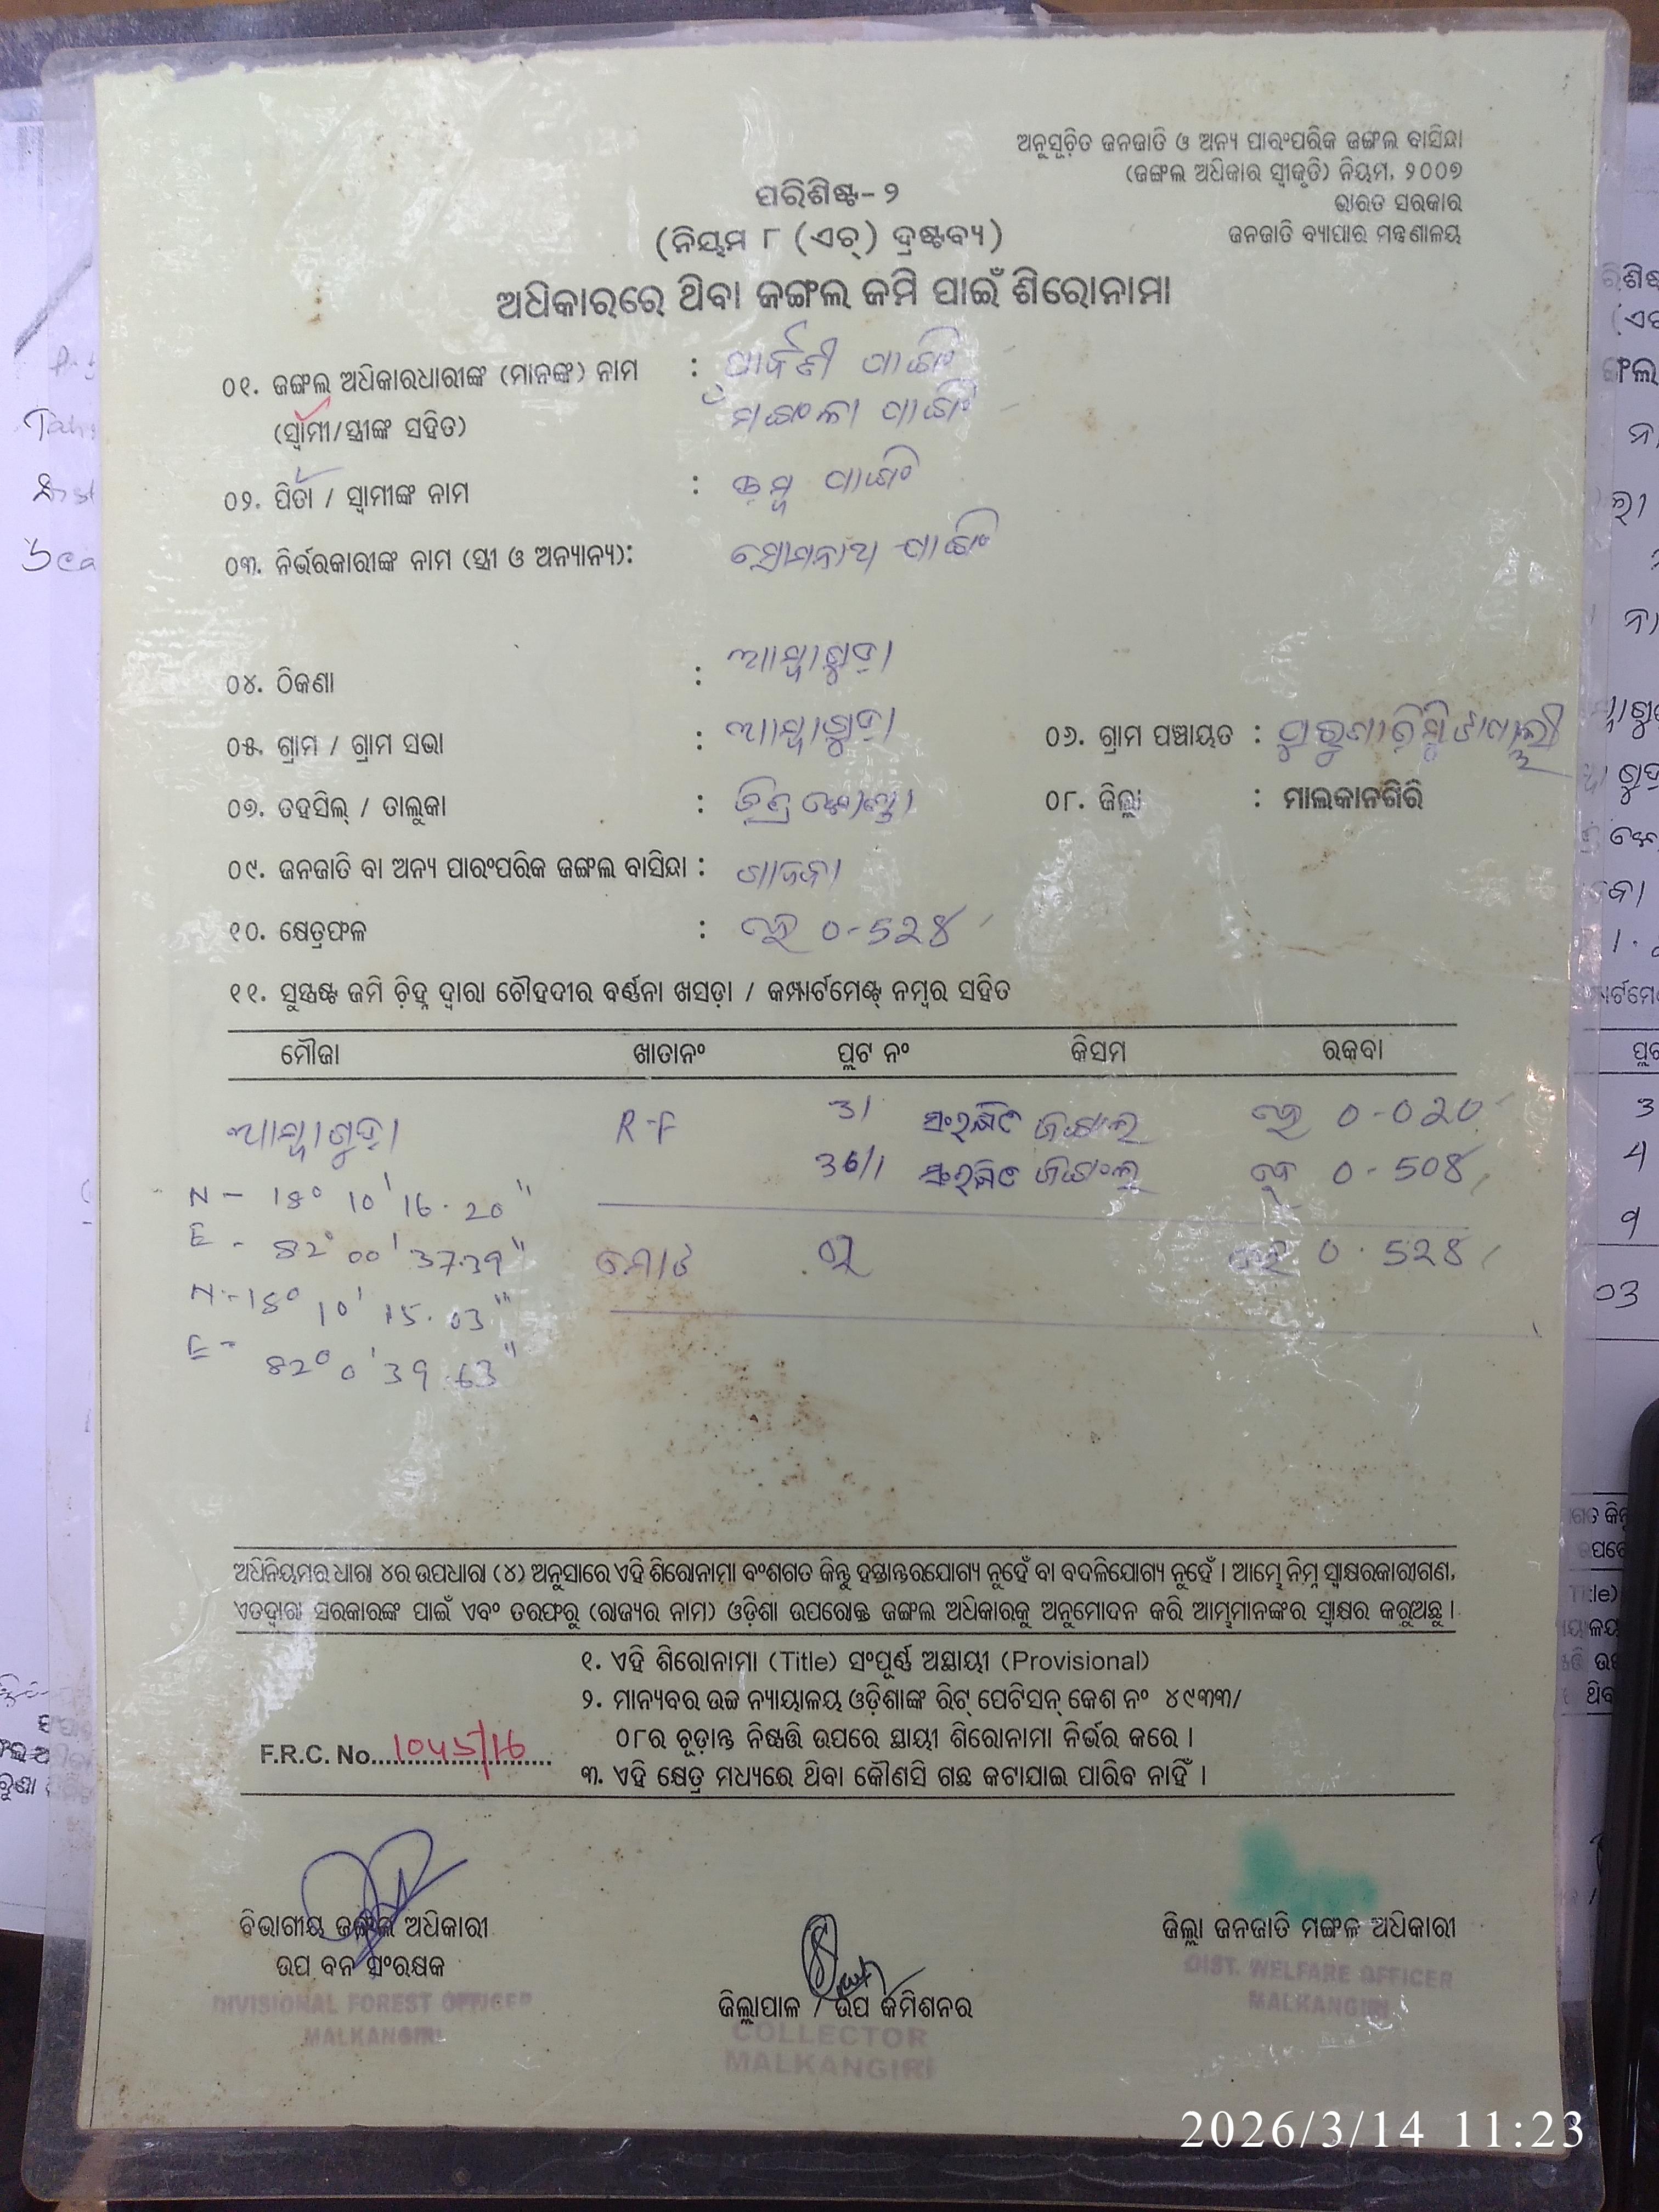 ଅନୁସୂଚିତ ଜନଜାତି ଓ ଅନ୍ୟ ପାରଂପରିକ ଜଙ୍ଗଲ ବାସିନ୍ଦା
(ଜଙ୍ଗଲ ଅଧିକାର ସ୍ୱୀକୃତି) ନିୟମ, ୨୦୦୭
ଭାରତ ସରକାର
ଜନଜାତି ବ୍ୟାପାର ମନ୍ତ୍ରଣାଳୟ
ପରିଶିଷ୍ଟ-୨
(ନିୟମ ୮ (ଏଚ୍) ଦ୍ରଷ୍ଟବ୍ୟ)
ଅଧିକାରରେ ଥିବା ଜଙ୍ଗଲ ଜମି ପାଇଁ ଶିରୋନାମା
୦୧. ଜଙ୍ଗଲ ଅଧିକାରଧାରୀଙ୍କ (ମାନଙ୍କ) ନାମ :
(ସ୍ୱାମୀ/ସ୍ତ୍ରୀଙ୍କ ସହିତ)
୦୨. ପିତା / ସ୍ୱାମୀଙ୍କ ନାମ :
୦୩. ନିର୍ଭରକାରୀଙ୍କ ନାମ (ସ୍ତ୍ରୀ ଓ ଅନ୍ୟାନ୍ୟ):
୦୪. ଠିକଣା : ଆମ୍ବାଗୁଡ଼ା
୦୫. ଗ୍ରାମ / ଗ୍ରାମ ସଭା : ଆମ୍ବାଗୁଡ଼ା ୦୬. ଗ୍ରାମ ପଞ୍ଚାୟତ :
୦୭. ତହସିଲ୍ / ତାଲୁକା : ୦୮. ଜିଲ୍ଲା : ମାଲକାନଗିରି
୦୯. ଜନଜାତି ବା ଅନ୍ୟ ପାରଂପରିକ ଜଙ୍ଗଲ ବାସିନ୍ଦା : ଗାଦବା
୧୦. କ୍ଷେତ୍ରଫଳ : ହେ 0-528
୧୧. ସୁସ୍ପଷ୍ଟ ଜମି ଚ଼ିହ୍ନ ଦ୍ୱାରା ଚୌହଦୀର ବର୍ଣ୍ଣନା ଖସଡ଼ା / କମ୍ପାର୍ଟମେଣ୍ଟ୍ ନମ୍ବର ସହିତ
ମୌଜା ଖାତାନଂ ପ୍ଲଟ ନଂ କିସମ ରକବା
ଆମ୍ବାଗୁଡ଼ା R-F 31 ସଂରକ୍ଷିତ ଜଙ୍ଗଲ ହେ 0-020
36/1 ସଂରକ୍ଷିତ ଜଙ୍ଗଲ ହେ 0-508
N - 18° 10' 16.20"
E - 82° 00' 37.39" ମୋଟ ହେ 0.528
N - 18° 10' 15.03"
E - 82° 0' 39.63"
ଅଧିନିୟମର ଧାରା ୪ର ଉପଧାରା (୪) ଅନୁସାରେ ଏହି ଶିରୋନାମା ବଂଶଗତ କିନ୍ତୁ ହସ୍ତାନ୍ତରଯୋଗ୍ୟ ନୁହେଁ ବା ବଦଳିଯୋଗ୍ୟ ନୁହେଁ । ଆମ୍ଭେ ନିମ୍ନ ସ୍ୱାକ୍ଷରକାରୀଗଣ,
ଏତଦ୍ୱାରା ସରକାରଙ୍କ ପାଇଁ ଏବଂ ତରଫରୁ (ରାଜ୍ୟର ନାମ) ଓଡ଼ିଶା ଉପରୋକ୍ତ ଜଙ୍ଗଲ ଅଧିକାରକୁ ଅନୁମୋଦନ କରି ଆମ୍ଭମାନଙ୍କର ସ୍ୱାକ୍ଷର କରୁଅଛୁ ।
୧. ଏହି ଶିରୋନାମା (Title) ସଂପୂର୍ଣ୍ଣ ଅସ୍ଥାୟୀ (Provisional)
୨. ମାନ୍ୟବର ଉଚ୍ଚ ନ୍ୟାୟାଳୟ ଓଡ଼ିଶାଙ୍କ ରିଟ୍ ପେଟିସନ୍ କେଶ ନଂ ୪୯୩୩/
୦୮ର ଚୂଡ଼ାନ୍ତ ନିଷ୍ପତ୍ତି ଉପରେ ସ୍ଥାୟୀ ଶିରୋନାମା ନିର୍ଭର କରେ ।
F.R.C. No. 1045/16
୩. ଏହି କ୍ଷେତ୍ର ମଧ୍ୟରେ ଥିବା କୌଣସି ଗଛ କଟାଯାଇ ପାରିବ ନାହିଁ ।
ବିଭାଗୀୟ ଜଙ୍ଗଲ ଅଧିକାରୀ
ଉପ ବନ ସଂରକ୍ଷକ
DIVISIONAL FOREST OFFICER
MALKANGIRI
ଜିଲ୍ଲାପାଳ / ଉପ କମିଶନର
COLLECTOR
MALKANGIRI
ଜିଲ୍ଲା ଜନଜାତି ମଙ୍ଗଳ ଅଧିକାରୀ
DIST. WELFARE OFFICER
MALKANGIRI
2026/3/14 11:23